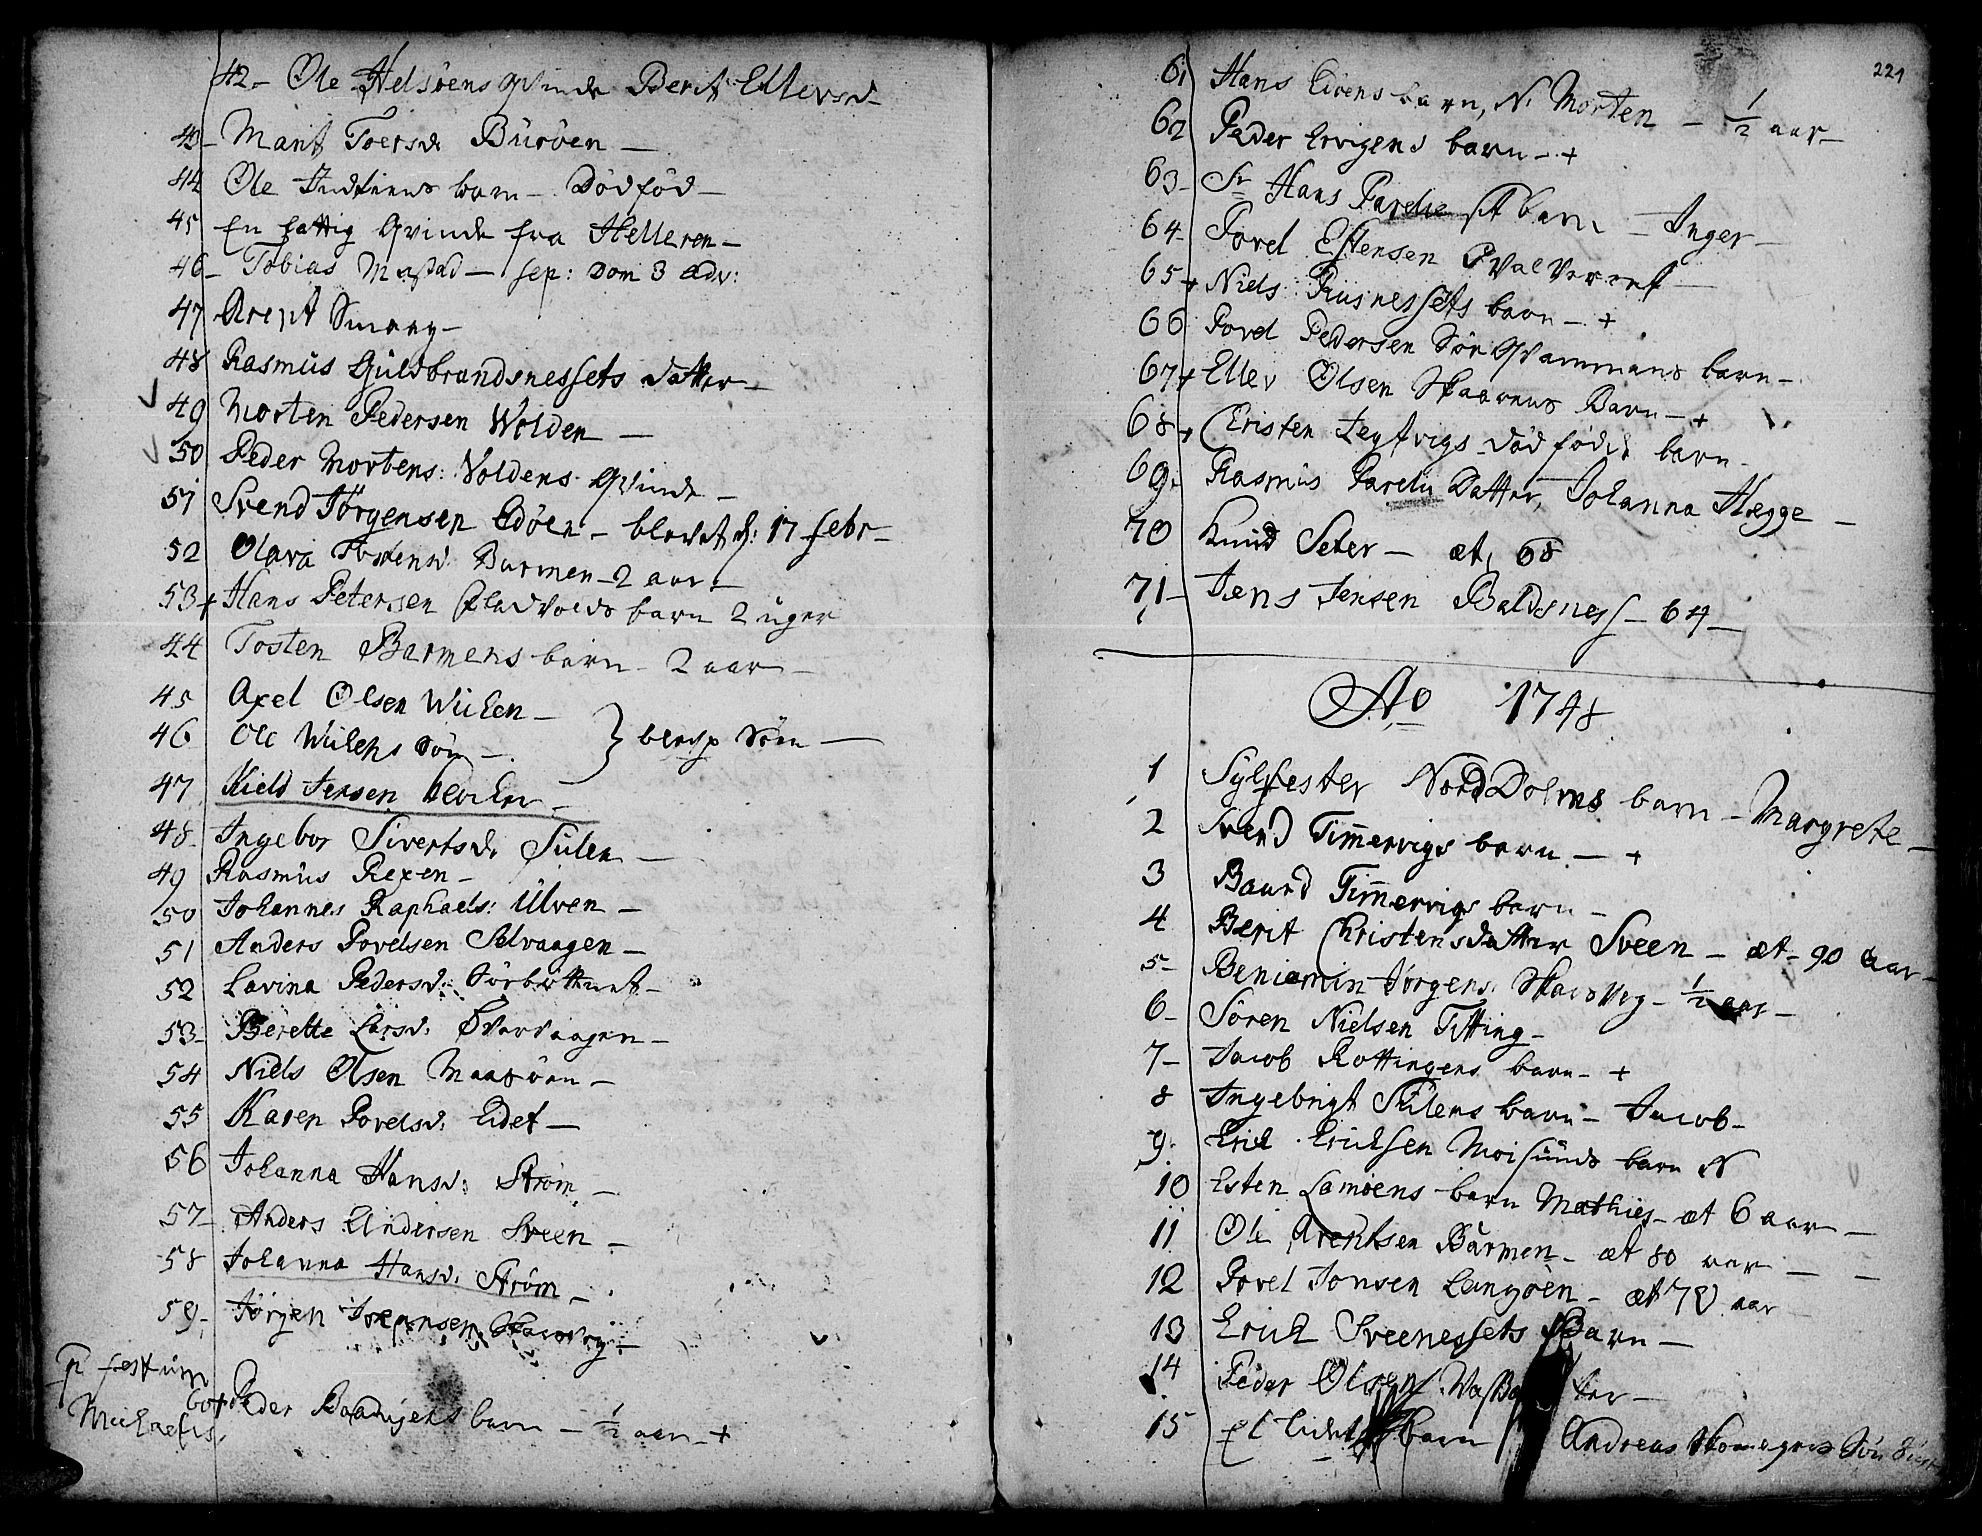 42- Ole Helsöens Qvinde Berit Ellevsd-
43- Marit Toersd: Buröen -
44 Ole Indtiens barn - Dödföd -
45 En fattig Qvinde fra Helleren -
46- Tobias Mostad - sep: Dom 3 adv:
47 Arent Smaag-
48 Rasmus Guldbrandsnessets datter -
49 Morten Pedersen Wolden -
50 Peder Mortens: Voldens Qvinde -
51 Svend Jörgensen Edöen - d: 17 febr -
52 Olava Tostensd: Barmen - 2 aar -
53+ Hans Petersen barn 2 uger
44 Tosten Barmens barn - 2 aar -
45 Axel Olsen Wiichen -
46 Ole Wiichens Sön - } Söen -
47 Kield Jensen -
48- Ingebor Sivertsd: Sulen -
49 Rasmus Rexen -
50 Johannes Raphaels: Ulven -
51 Anders Povelsen Selvaagen -
52 Lavina Pedersd: Sörbottnet -
53- Berette Larsd: Qvarvaagen -
54 Niels Olsen Maasöen -
55 Karen Povelsd: Eidet -
56 Johanna Hansd: Ström -
57- Anders Andersen Sveen -
58 Johanna Hansd: Ström -
59- Jörgen Svensen -
p festum
Michaelis.
60+ Peder barn - 1/2 aar - +
221
61 Hans Eidens barn, N. Morten - 1/2 aar -
62 Peder Ervigens barn - +
63- Sr Hans Parelie sit barn - Inger -
64- Povel Estensen
65+ Niels Rusnessets barn - +
66 Povel Pedersen Sör Qvammens barn -
67+ Ellev Olsen Skaarens Barn - +
68+ Christen Legtvigs död föde barn -
69. Rasmus Parelii Datter, Johanna Hegge -
70 Knud Seter - æt, 68
71- Jens Jensen Baldsness - 64 -
Ao 1748
1 Sylfester Nord Dolms barn - Margrete -
2 Svend Timmervigs barn - +
3 Baard Timmervigs barn -
4 Berit Christensdatter Sveen - æt - 90 aar -
5- Beniamin Jörgens: - 1/2 aar -
6- Sören Nielsen Titting -
7- Jacob Rottingens barn - +
8 Ingebrigt Sulens barn - Jacob -
9. Erich Erichsen Moisunds barn N
10 Esten Lamöens barn Mathies - æt 6 aar -
11 Ole Arentsen Barmen - æt 80 aar -
12 Povel Jonsen Langöen - æt 78 aar
13 Erich Sveenessets Barn -
14 Peder Olsen
15 Et lidet barn Andreas Sön